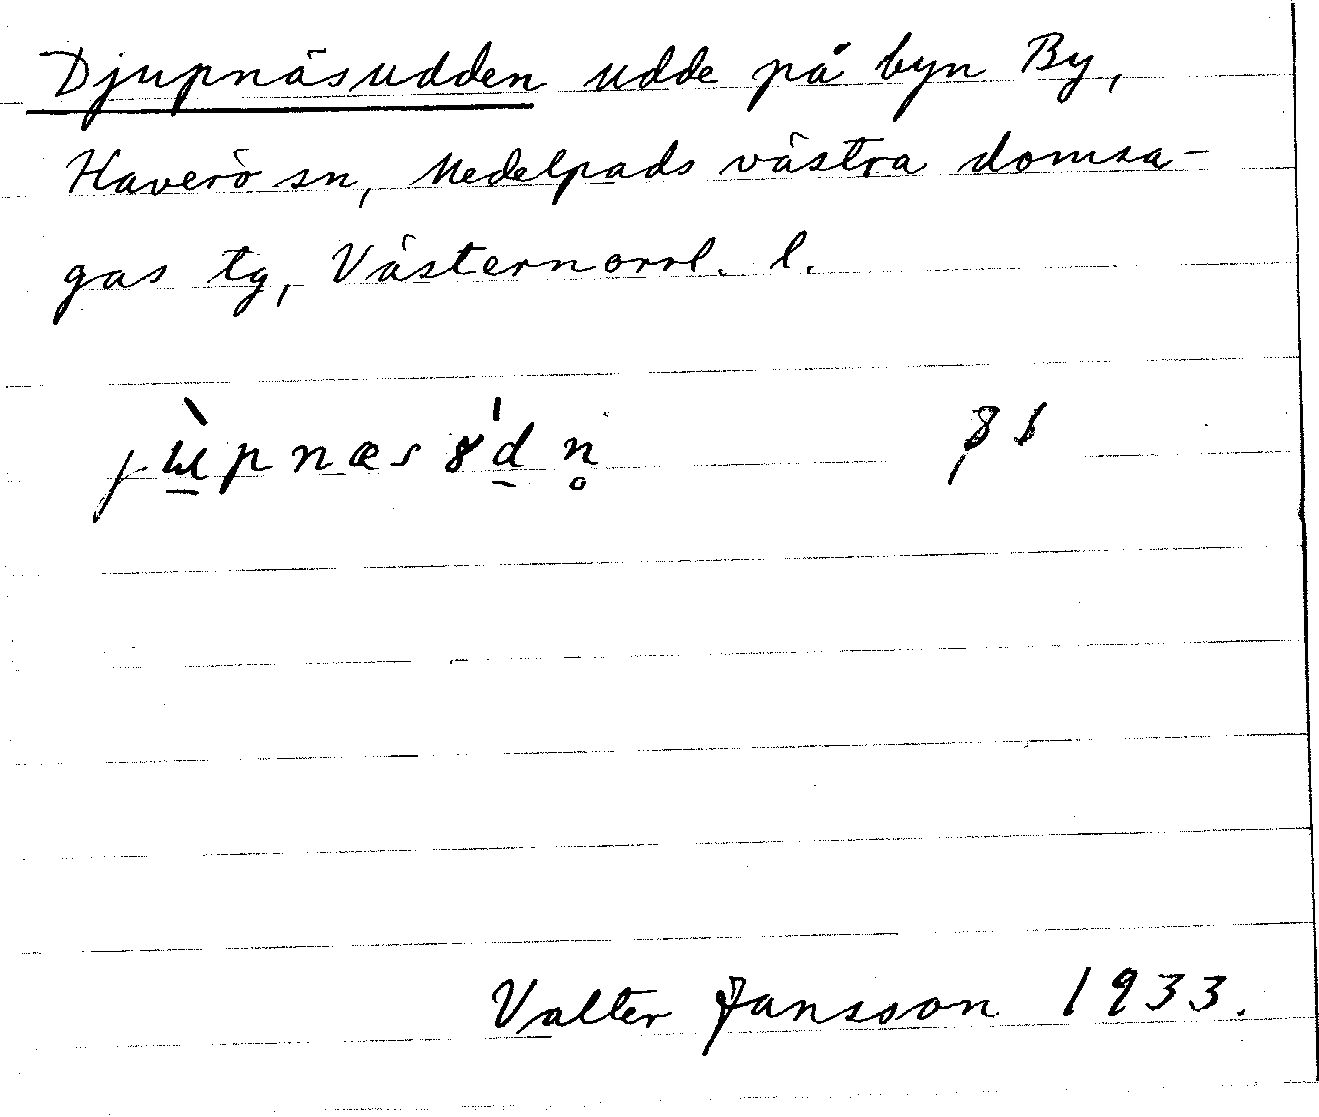 Djupnäsudden udde på byn By,
Haverö sn, Medelpads västra domsa-
gas tg, Västernorrl. l.
Valter Jansson 1933.